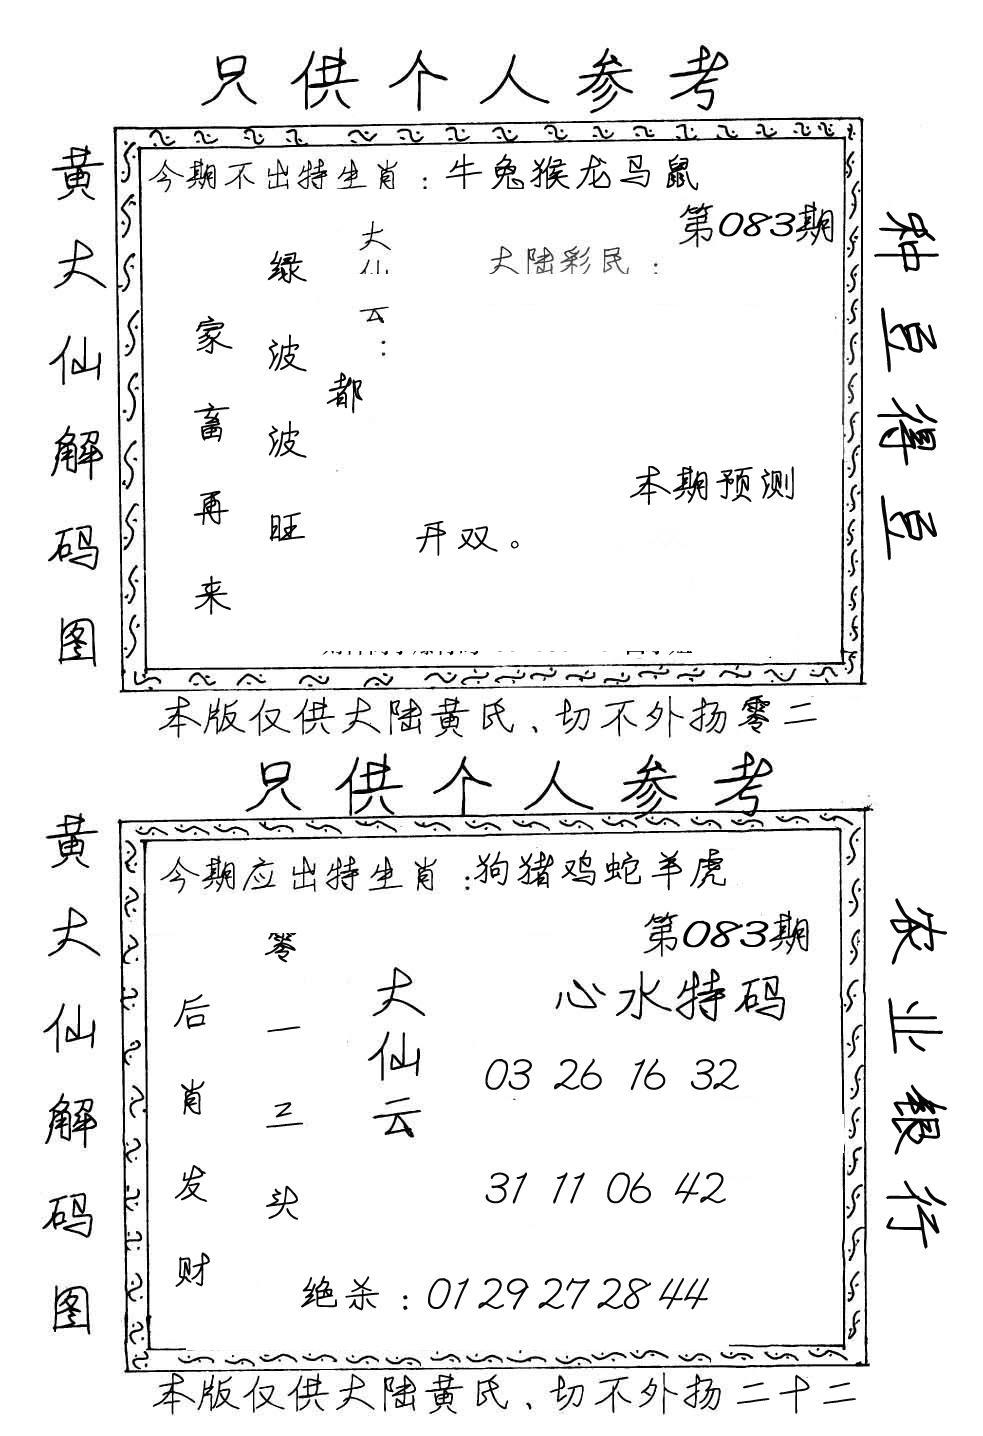 只供个人参考
黄大仙解码图
今期不出特生肖：牛兔猴龙马鼠
第083期
大陆彩民：
大仙云：
绿波波旺
家畜再来
都
本期预测
开双。
种豆得豆
本版仅供大陆黄氏、切不外扬零二
只供个人参考
黄大仙解码图
今期应出特生肖：狗猪鸡蛇羊虎
第083期
心水特码
大仙云
零一三头
后肖发财
03 26 16 32
31 11 06 42
绝杀：01 29 27 28 44
农业银行
本版仅供大陆黄氏、切不外扬二十二